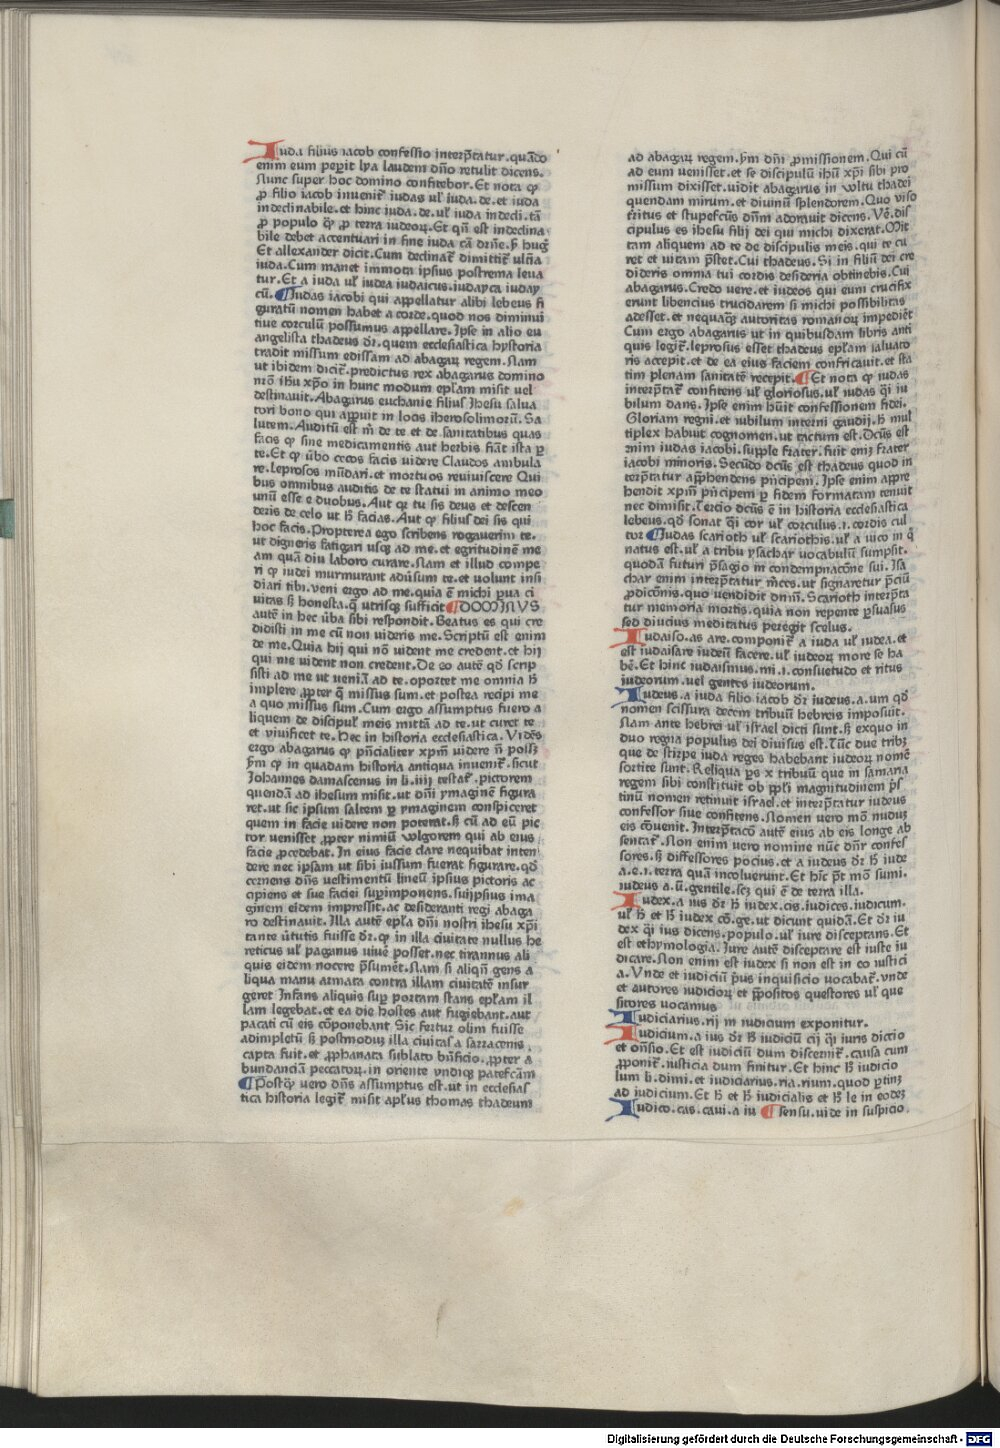 Iuda filius iacob confessio interp̄tatur.quādo
enim eum peꝑit lya laudem dn̄o retulit dicens.
Nunc super hoc domino confitebor.Et nota ꝙ
ꝓ filio iacob inuenit᷑ iudas ul᷑ iuda.de.et iuda
indeclinabile.et hinc iuda.de.ul᷑ iuda indecli.tā
ꝓ populo q̄ꝫ ꝓ terra iudeoꝝ.Et qn̄ est indeclina
bile debet accentuari in fine iuda cā drn̄e.ꝑ hugꝫ
Et allexander dicit.Cum declinat᷑ dimittit᷑ ulīa
iuda.Cum manet immota ipsius postrema leua
tur.Et a iuda ul᷑ iudea iudaicus.iudayca iuday
cū.¶Iudas iacobi qui appellatur alibi lebeus fi
guratū nomen habet a corde.quod nos diminui
tiue corculū possumus appellare.Ipse in alio eu
angelista thadeus dr̄.quem ecclesiastica hystoria
tradit missum edissam ad abagaꝝ regem.Nam
ut ibidem dicit᷑.predictus rex abagarus domino
nr̄o ihū xp̄o in hunc modum ep̄lam misit uel
destinauit.Abagarus euchanie filius Ihesu salua
tori bono qui apꝑuit in locis iherosolimoꝝ.Sa
lutem.Auditū est m̄ de te et de sanitatibus quas
facis ꝙ sine medicamentis aut herbis fiāt ista ꝑ
te.Et ꝙ ūbo cecos facis uidere Claudos ambula
re.leprosos mūdari.et mortuos reuiuiscere Qui
bus omnibus auditis de te statui in animo meo
unū esse e duobus.Aut ꝙ tu sis deus et descen
deris de celo ut h̄ facias.Aut ꝙ filius dei sis qui
hoc facis.Propterea ego scribens rogauerim te.
ut digneris fatigari usqꝫ ad me.et egritudinē me
am quā diu laboro curare.Nam et illud compe
ri ꝙ iudei murmurant adūsum te.et uolunt insi
diari tibi.veni ergo ad me.quia ē michi ꝑua ci
uitas sꝫ honesta.q̄ utrisqꝫ sufficit ¶DOMINVS
autē in hec ūba sibi respondit.Beatus es qui cre
didisti in me cū non uideris me.Scriptū est enim
de me.Quia hij qui nō uident me credent.et hij
qui me uident non credent.De eo autē qd̄ scrip
sisti ad me ut uenirā ad te.oportet me omnia h̄
implere ꝓpter q̄ missus sum.et postea recipi me
a quo missus sum.Cum ergo assumptus fuero a
liquem de discipul᷑ meis mittā ad te.ut curet te
et viuificet te.Hec in historia ecclesiastica.Vidēs
ergo abagarus ꝙ pn̄cialiter xpm̄ uidere n̄ possꝫ
ꝑm ꝙ in quadam historia antiqua inuenit᷑.sicut
Johannes damascenus in li.iiij testat᷑.pictorem
quendā ad ihesum misit.ut dn̄i ymaginē figura
ret.ut sic ipsum saltem ꝑ ymaginem conspiceret
quem in facie uidere non poterat.sꝫ cū ad eū pic
tor uenisset ꝓpter nimiū vulgorem qui ab eius
facie ꝓcedebat.In eius facie clare nequibat inten
dere nec ipsam ut sibi iussum fuerat figurare.qd̄
cernens dn̄s vestimentū lineū ipsius pictoris ac
cipiens et sue faciei suꝑimponens.suijpsius ima
ginem eidem impressit.ac desideranti regi abaga
ro destinauit.Illa autē ep̄la dn̄i nostri ihesu xp̄i
tante ūtutis fuisse dr̄.ꝙ in illa ciuitate nullus he
reticus ul᷑ paganus uiuē posset.nec tirannus ali
quis eidem nocere p̄sumēt.Nam si aliqn̄ gens a
liqua manu armata contra illam ciuitatē insur
geret Infans aliquis suꝑ portam stans ep̄lam il
lam legebat.et ea die hostes aut fugiebant.aut
pacati cū eis cōponebant Sic fertur olim fuisse
adimpletū sꝫ postmodū illa ciuitas a sarracenis
capta fuit.et ꝓphanata sublato bn̄ficio.ꝓpter a
bundanciā peccatoꝝ.in oriente vndiqꝫ patefcām
¶Postqꝫ vero dn̄s assumptus est.ut in ecclesias
tica historia legit᷑.misit apl̄us thomas thadeum
ad abagaꝝ regem.ꝑm dn̄i ꝓmissionem.Qui cū
ad eum uenisset.et se discipulū ihū xp̄i sibi pro
missum dixisset.uidit abagarus in vultu thadei
quendam mirum.et diuinū splendorem.Quo viso
t̄ritus et stupefcūs dn̄m adorauit dicens.Vē.dis
cipulus es ihesu filij dei qui michi dixerat.Mit
tam aliquem ad te de discipulis meis.qui te cu
ret et uitam p̄stet.Cui thadeus.Si in filiū dei cre
dideris omnia tui cordis desideria obtinebis.Cui
abagarus.Credo uere.et iudeos qui eum crucifix
erunt libencius trucidarem si michi possibilitas
adesset.et nequaqꝫ autoritas romanoꝝ impediēt
Cum ergo abagarus ut in quibusdam libris anti
quis legit᷑.leprosus esset thadeus ep̄lam saluato
ris accepit.et de ea eius faciem confricauit.et sta
tim plenam sanitatē recepit.¶Et nota ꝙ iudas
interp̄tat᷑ confitens ul᷑ gloriosus.ul᷑ iudas q̄i iu
bilum dans.Ipse enim hūit confessionem fidei.
Gloriam regni.et iubilum interni gaudij.h̄ mul
tiplex habuit cognomen.ut tactum est.Dcūs est
nim iudas iacobi.supple frater.fuit enīꝫ frater
iacobi minoris.Secūdo dcūs est thadeus quod in
terp̄tatur app̄hendens pn̄cipem.Ipse enim appre
hendit xpm̄ pn̄cipem ꝑ fidem formatam tenuit
nec dimisit.Tercio dcūs ē in historia ecclesiastica
lebeus.qd̄ sonat q̄i cor ul᷑ corculus.i.cordis cul
tor ¶Iudas scarioth ul᷑ scariothis.ul᷑ a uico in q̄
natus est.ul᷑ a tribu ysachar vocabulū sumpsit.
quodā futuri p̄sagio in condempnacōne sui.Isa
char enim interp̄tatur m̄ces.ut signaretur p̄ciū
ꝓdicōnis.quo vendidit dnm̄.Scarioth interp̄ta
tur memoria mortis.quia non repente ꝑsuasus
sed diucius meditatus peregit scelus.
Iudaiso.as are.componit᷑ a iuda ul᷑ iudea.et
est iudaisare iudeū facere.ul᷑ iudeoꝝ more se ha
bē.Et hinc iudaismus.mi.i.consuetudo et ritus
iudeorum.uel gentes iudeorum.
Iudeus.a iuda filio iacob dr̄ iudeus.a.um qd̄
nomen scissura decem tribuū hebreis imposuit.
Nam ante hebrei ul᷑ israel dicti sunt.sꝫ exquo in
duo regna populus dei diuisus est.Tūc due tribꝫ
que de stirpe iuda reges habebant iudeoꝝ nomē
sortite sunt.Reliqua ꝑs x tribuū que in samaria
regem sibi constituit ob ppl̄i magnitudinem p̄s
tinū nomen retinuit israel.et interp̄tatur iudeus
confessor siue confitens.Nomen uero mō nuduꝫ
eis cōuenit.Interp̄tacō autē eius ab eis longe ab
sentat᷑.Non enim uero nomine nūc dn̄r confes
sores.sꝫ diffessores pocius.et a iudeus dr̄ h̄ iude
a.e.i.terra quā incoluerunt.Et hīc pt̄ mō sumi.
iudeus a.ū.gentile.scꝫ qui ē de terra illa.
Iudex.a ius dr̄ h̄ iudex.cis.iudices.iudicum.
ul᷑ h̄ et h̄ iudex cō.ge.ut dicunt quidā.Et dr̄ iu
dex q̄i ius dicens.populo.ul᷑ iure disceptans.Et
est ethymologia.Iure autē disceptare est iuste iu
dicare.Non enim est iudex si non est in eo iustici
a.Vnde et iudiciū p̄us inquisicio vocabat᷑.vnde
et autores iudicioꝝ et p̄positos questores ul᷑ que
sitores vocamus
Iudiciarius.rij in iudicium exponitur.
Iudicium.a ius dr̄ h̄ iudiciū cij q̄i iuris diccio
et ōn̄sio.Et est iudiciū dum discernit᷑.causa cum
ꝓponit᷑.iusticia dum finitur.Et hinc h̄ iudicio
lum li.dimi.et iudiciarius.ria.rium.quod ꝑtinꝫ
ad iudicium.Et h̄ et h̄ iudicialis et h̄ le in eodeꝫ
Iudico.cas.caui.a iu ¶sensu.uide in suspicio.
Digitalisierung gefördert durch die Deutsche Forschungsgemeinschaft - DFG